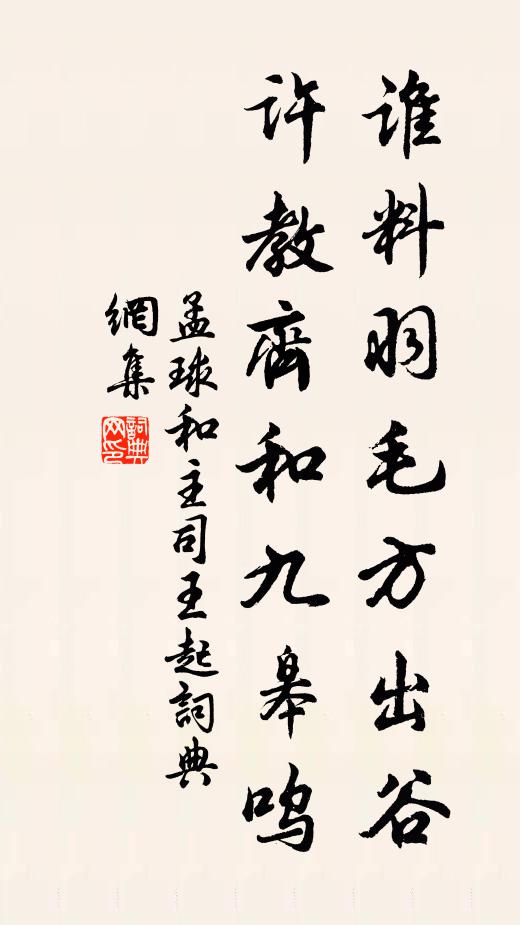 谁料羽毛方出谷
许教齊和九皋鸣
孟球和主司王起詞典
網集
詞典
网印